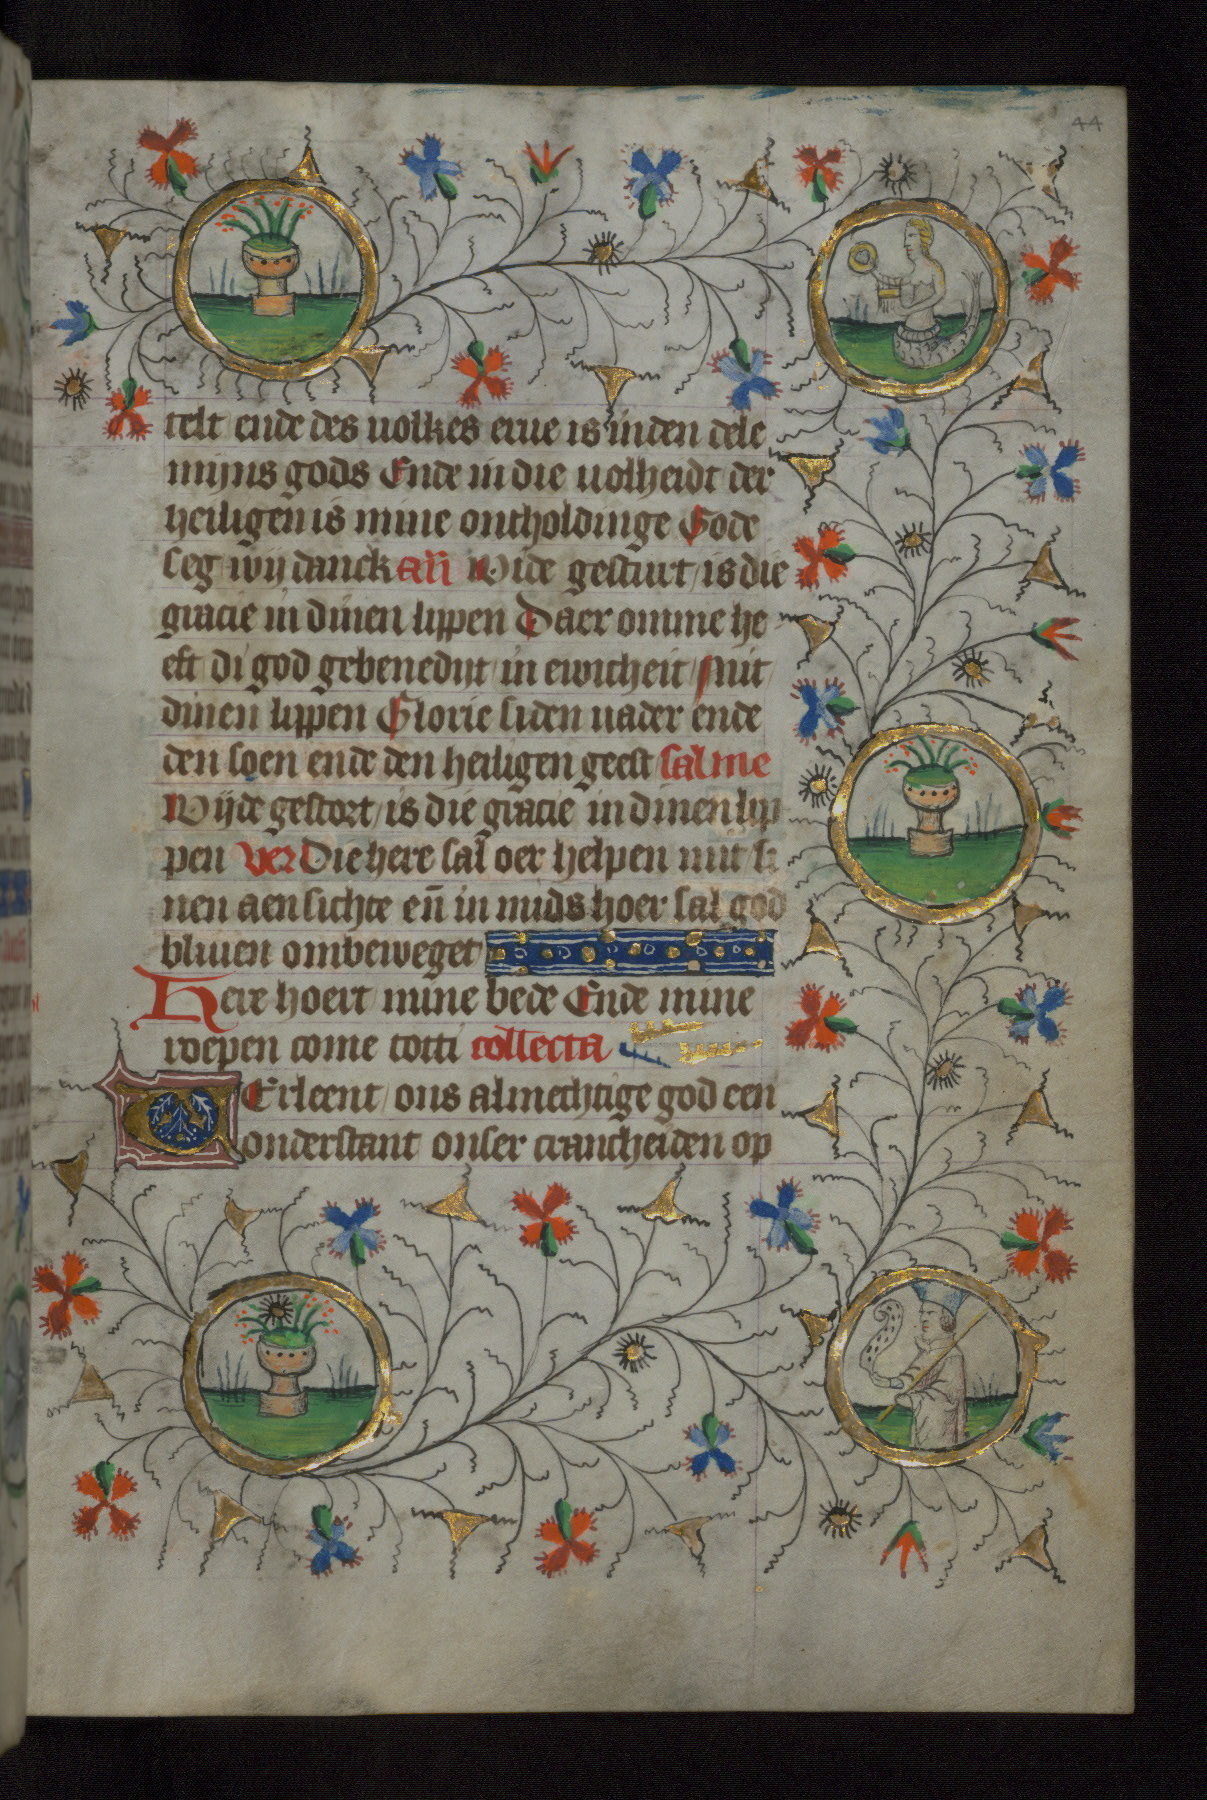 44
telt ende des uolkes erue is inden dele
mijns gods Ende in die uolheidt der
heiligen is mine ontholdinge Gode
seg wij danck an̄ Wide gesturt is die
gracie in dinen lippen Daer omme he
eft di god gebenedijt in ewicheit Mit
dinen lippen Glorie si den uader ende
den soen ende den heiligen geest salme
Wijde gestort is die gracie in dinen lip
pen ver Die here sal oer helpen mit si
nen aensichte en̄ in mids hoer sal god
bliuen ombeweget
Here hoert mine bede Ende mine
roepen come totti collecta
Erleent ons almechtige god een
onderstant onser crancheiden op